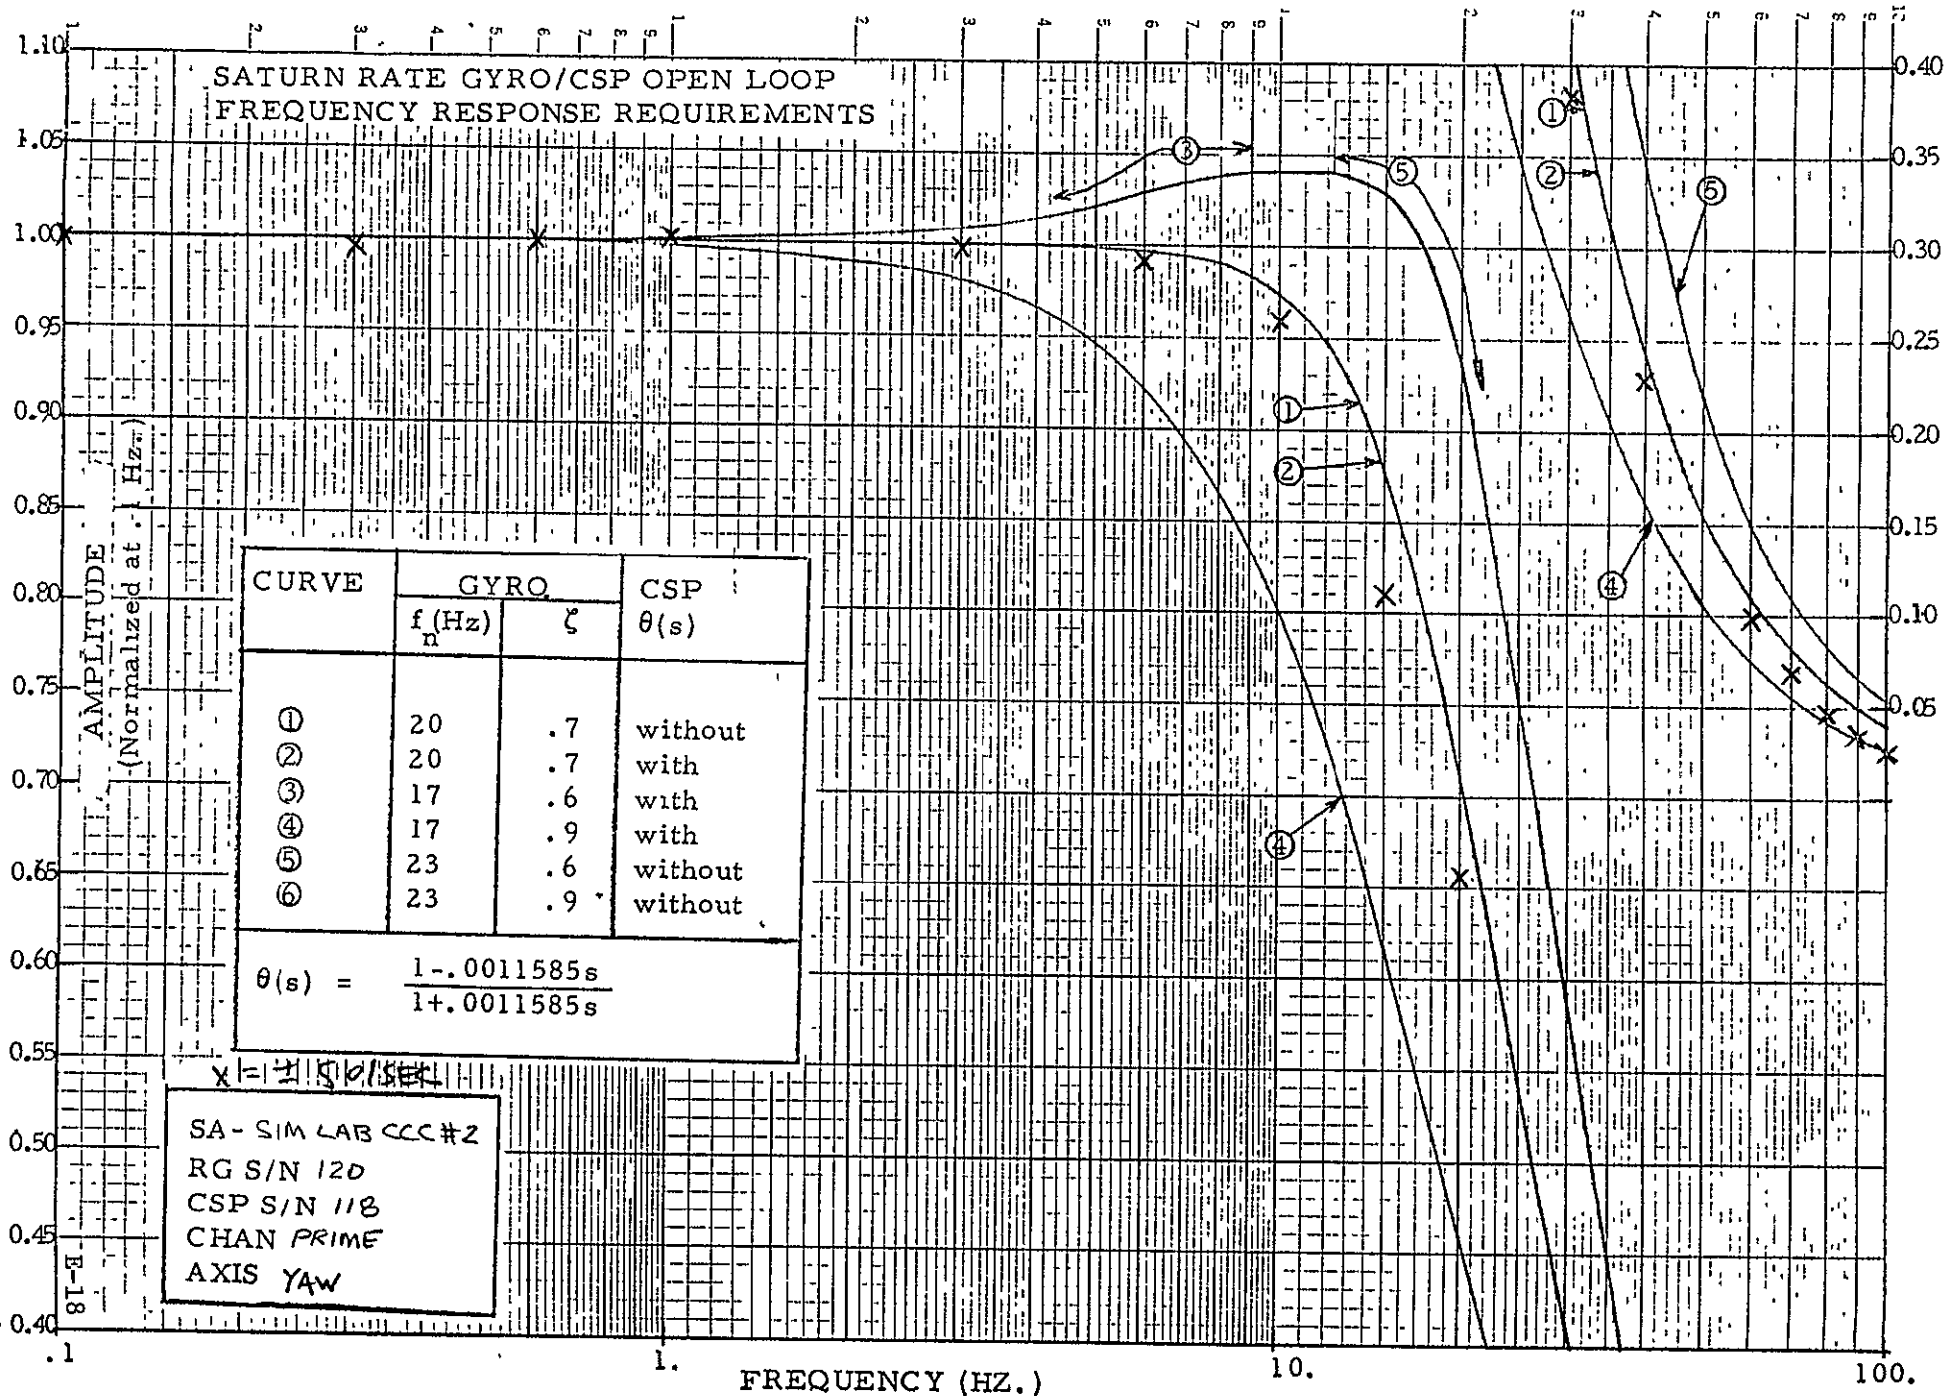 1 2 3 4 5 6 7 8 9 1 2 3 4 5 6 7 8 9 1 2 3 4 5 6 7 8 9
SATURN RATE GYRO/CSP OPEN LOOP
FREQUENCY RESPONSE REQUIREMENTS
1.10
1.05
1.00
0.95
0.90
0.85
0.80
0.75
0.70
0.65
0.60
0.55
0.50
0.45
0.40
AMPLITUDE
(Normalized at .1 Hz.)
0.40
0.35
0.30
0.25
0.20
0.15
0.10
0.05
③
⑤
①
②
⑤
①
②
④
④
CURVE GYRO CSP
f_n(Hz) ζ θ(s)
① 20 .7 without
② 20 .7 with
③ 17 .6 with
④ 17 .9 with
⑤ 23 .6 without
⑥ 23 .9 without
θ(s) = 1-.0011585s
1+.0011585s
SA- SIM LAB CCC #2
RG S/N 120
CSP S/N 118
CHAN PRIME
AXIS YAW
E-18
.1 1. 10. 100.
FREQUENCY (HZ.)